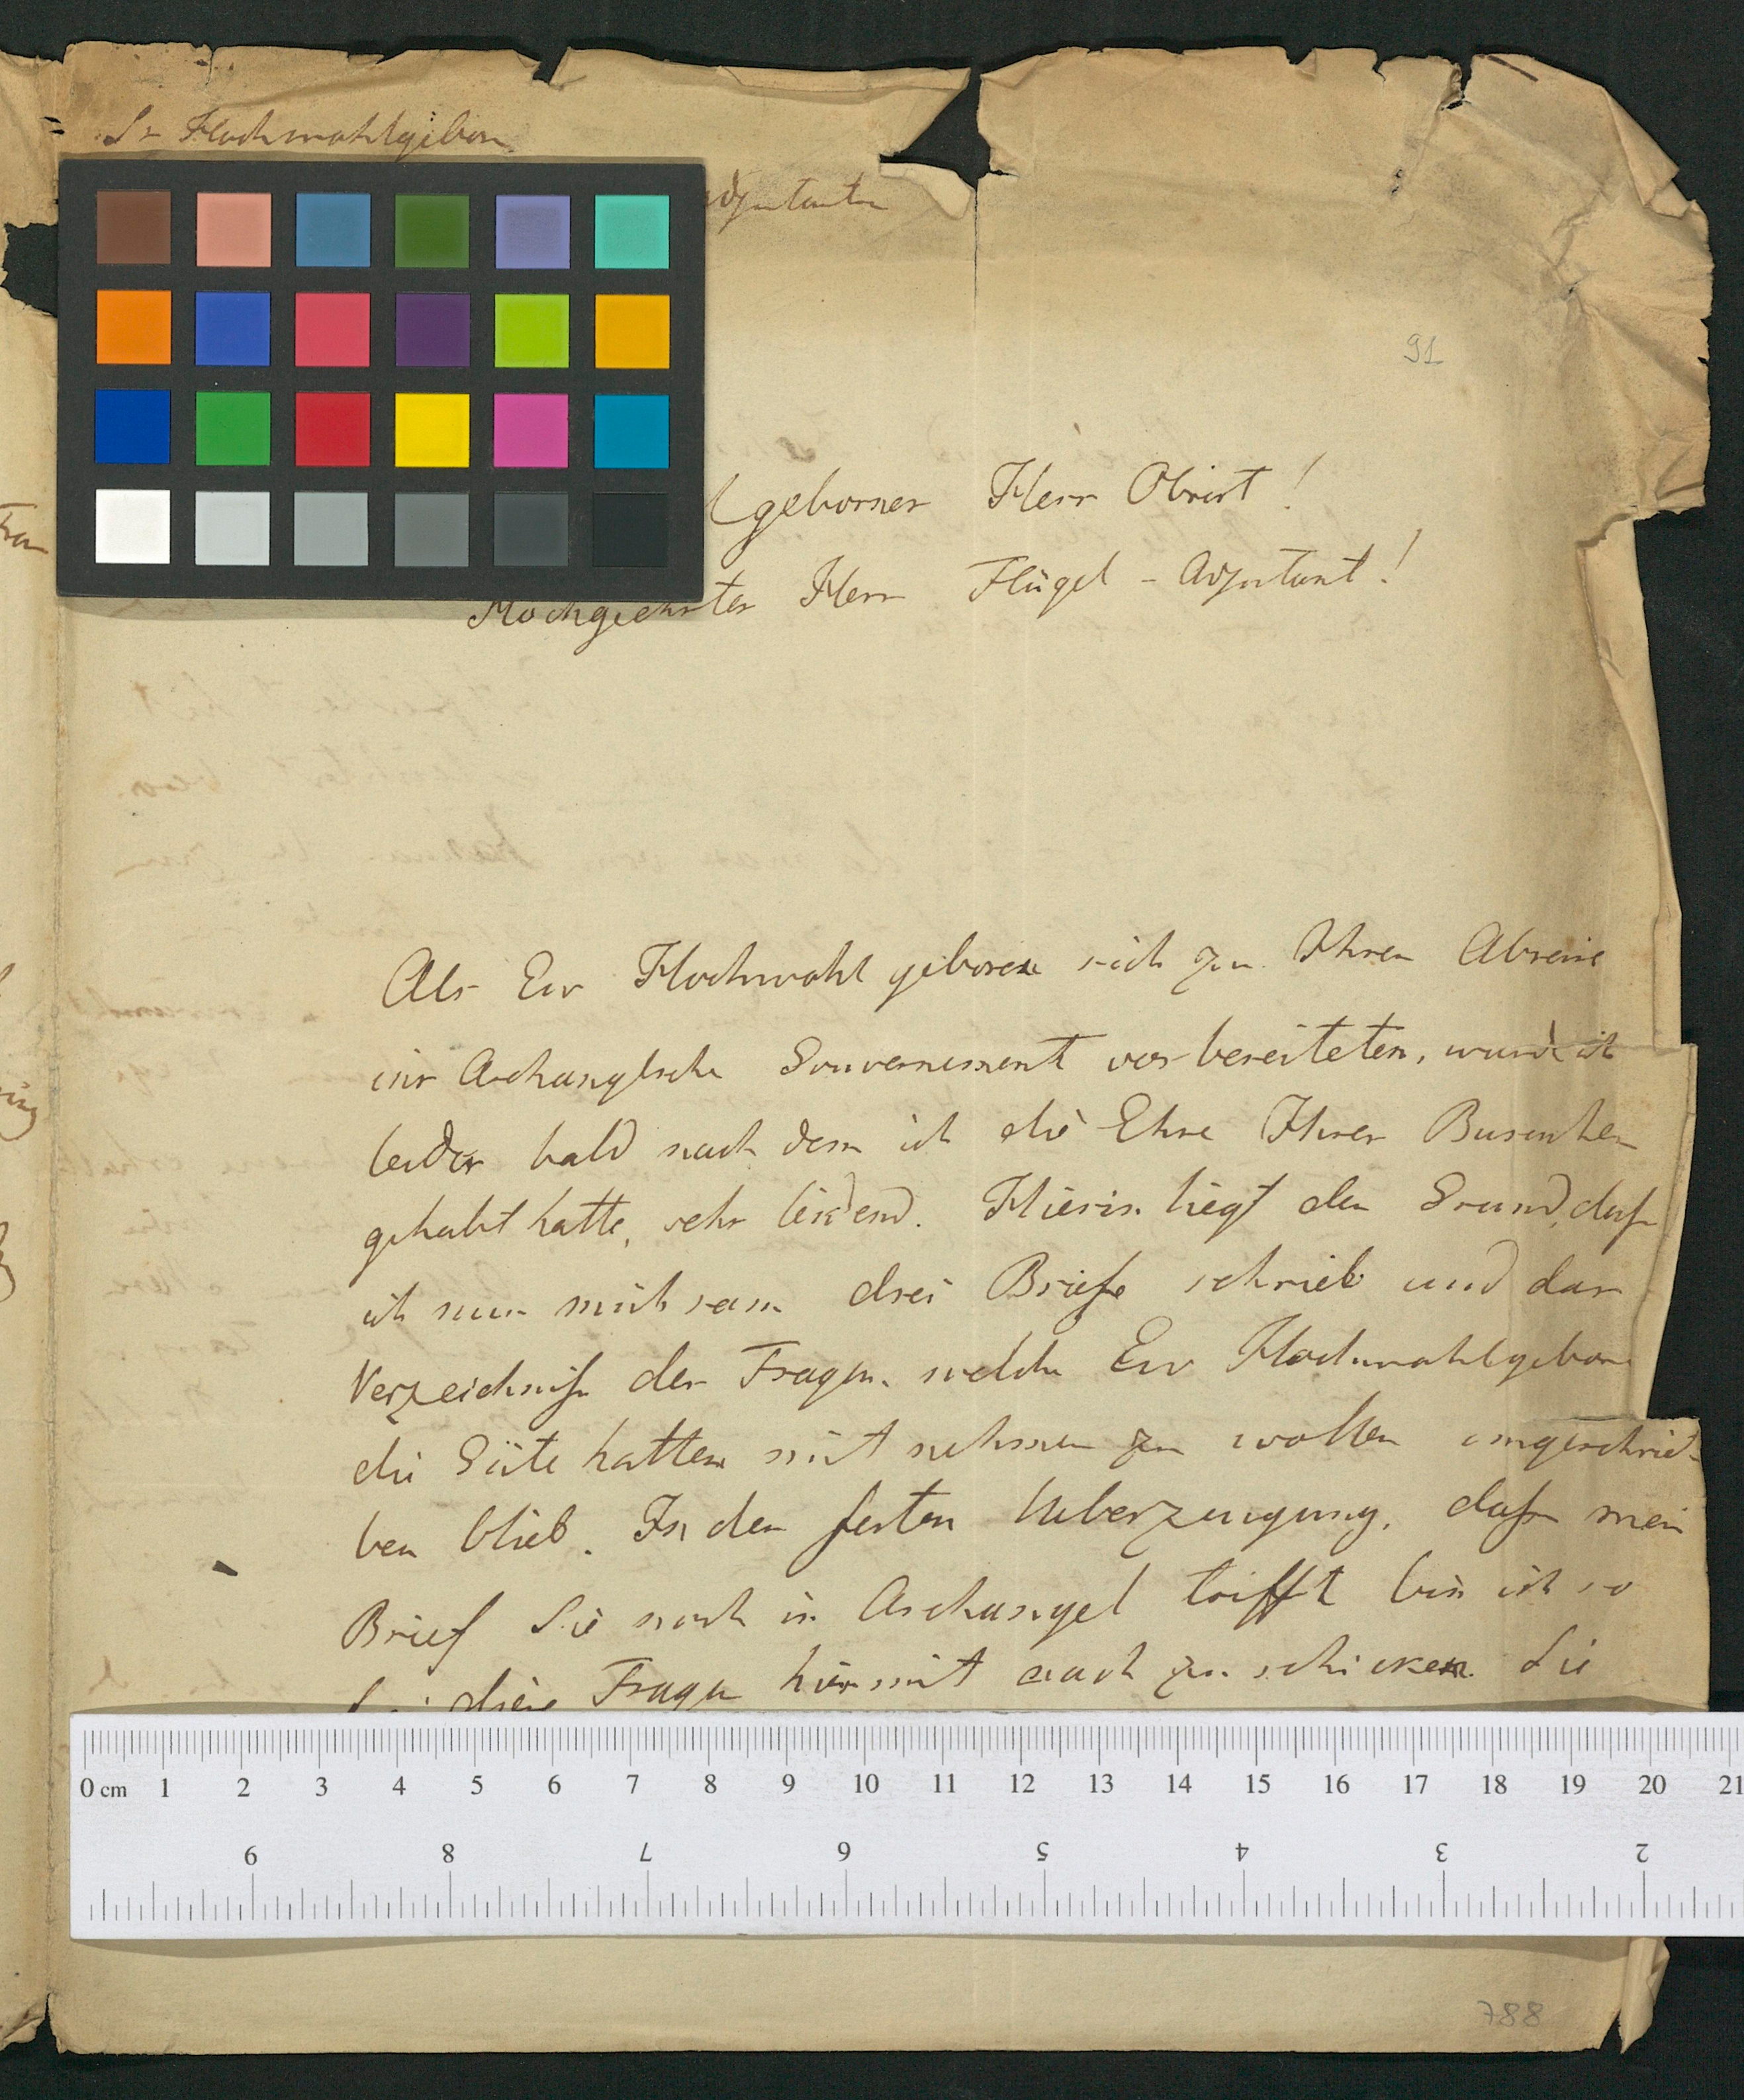 Sr Hochwohlgeboren
adjutanten
91
lgeborner Herr Obrist!
Hochgeehrter Herr Flügel-Adjutant!
Als Ew Hochwohlgeboren sich zu Ihrer Abreise
ins Archangelsche Gouvernement vorbereiteten, wurde ich
leider bald nach dem ich die Ehre Ihres Besuches
gehabt hatte, sehr leidend. Hierin liegt der Grund, dass
ich nur mühsam drei Briefe schrieb und das
Verzeichniss der Fragen, welche Ew Hochwohlgeboren
die Güte hatten mit nehmen zu wollen ungeschrie-
ben blieb. In der festen Ueberzeugung, dass mein
Brief Sie noch in Archangel trifft bin ich so
diese Fragen hiermit nach zu schicken. Sie
0 cm 1 2 3 4 5 6 7 8 9 10 11 12 13 14 15 16 17 18 19 20 21
9 8 7 6 5 4 3 2
788